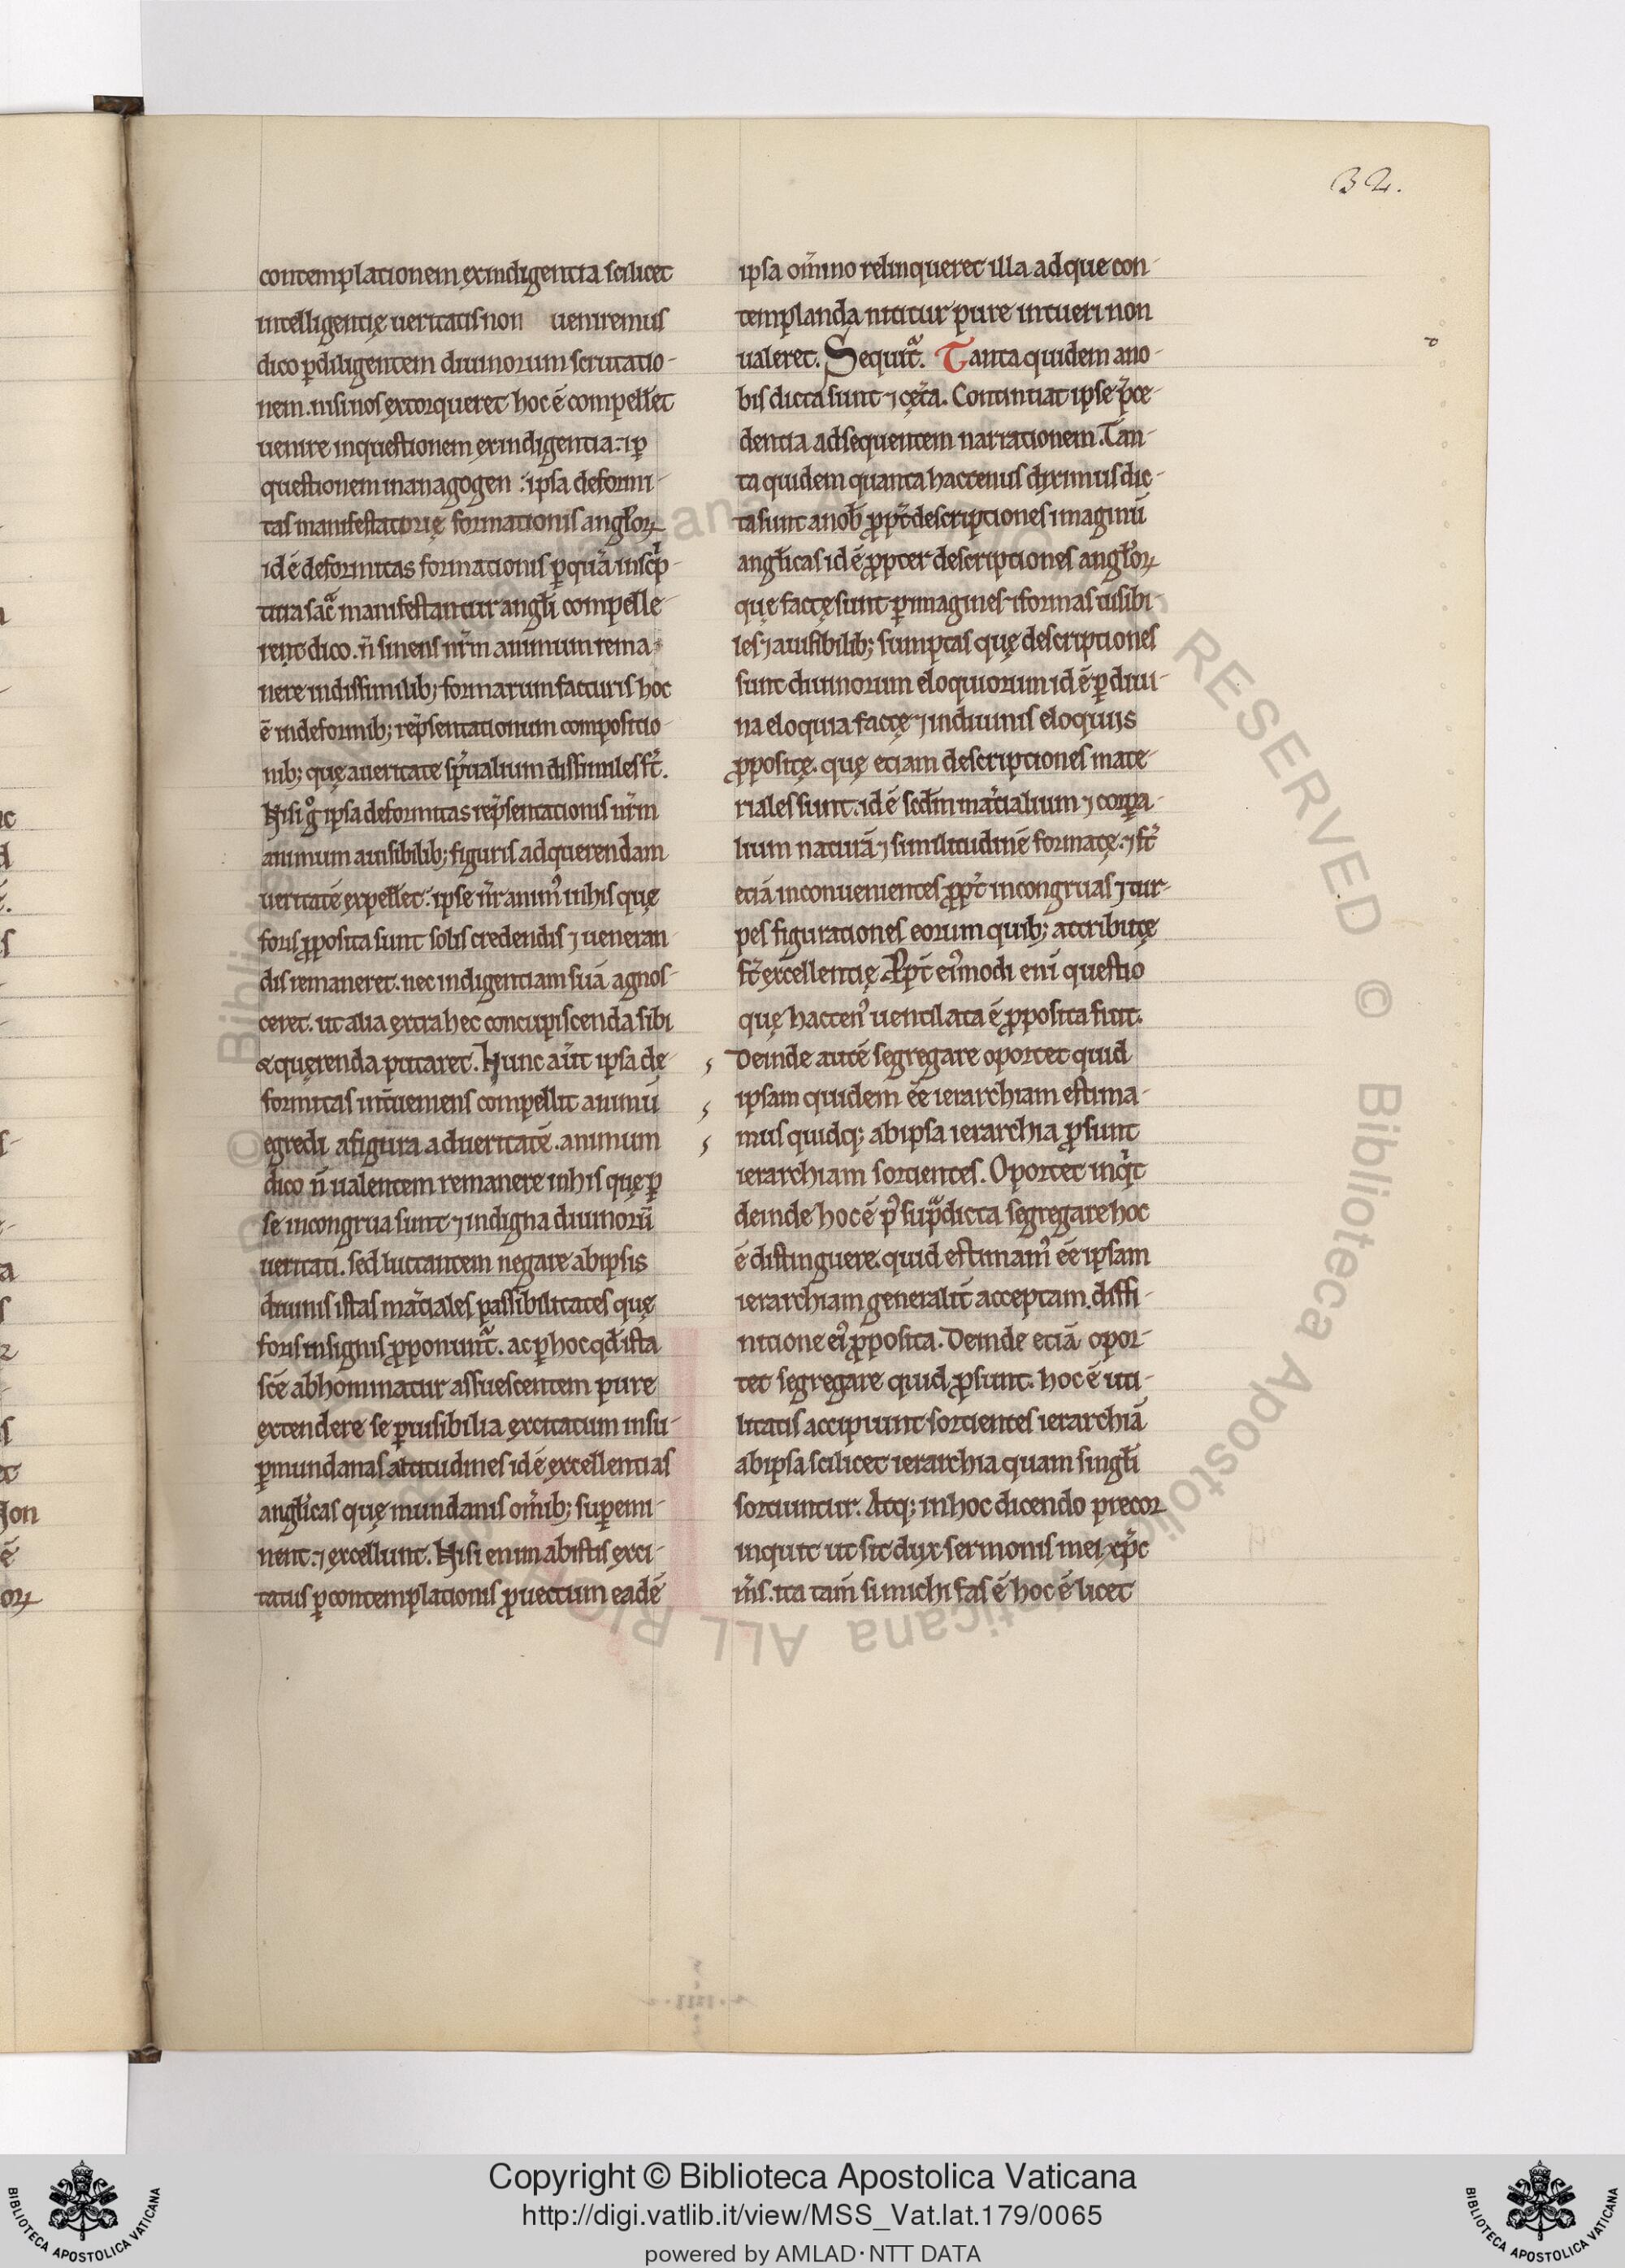 32.
contemplationem ex indigentia scilicet
intelligentię ueritatis non ueniremus
dico ꝑ diligentem diuinorum scrutatio-
nem. nisi nos extorqueret hoc ē compelleret
uenire in questionem ex indigentia: ⁊ ꝑ
questionem in anagogen: ipsa deformi-
tas manifestatorię formationis angl̃oꝝ
id ē deformitas formationis ꝑ quā in sc̃p-
tura sac̃ manifestantur angl̃i compelle-
rent dico. ñ sinens nr̃m animum rema-
nere in dissimilib; formarum facturis hoc
ē in deformib; rep̃sentationum compositio-
nib; quę a ueritate sp̃ualium dissimiles st̃.
Nisi gͦ ipsa deformitas rep̃sentationis nr̃m
animum a uisibilib; figuris ad querendam
ueritatē expelleret: ipse nr̃ animꝰ in his quę
foris ꝓposita sunt solis credendis ⁊ ueneran-
dis remaneret. nec indigentiam suā agnos-
ceret. ut alia extra hec concupiscenda sibi
& querenda putaret. Hunc aut̃ ipsa de-
formitas int̃ueniens compellit animū
egredi a figura ad ueritatē. animum
dico ñ ualentem remanere in his quę ꝑ
se incongrua sunt ⁊ indigna diuinorū
ueritati. sed luctantem negare ab ipsis
diuinis istas mat̃iales passibilitates quę
foris in signis ꝓponunt᷑. ac ꝑ hoc qđ ista
sc̃e abhominatur assuescentem pure
extendere se ꝑ uisibilia excitatum in su-
ꝑmundanas altitudines id ē excellentias
angl̃icas quę mundanis om̃ib; suꝑemi-
nent. ⁊ excellunt. Nisi enim ab istis exci-
tatus ꝑ contemplationis ꝓuectum eadē
ipsa om̃ino relinqueret illa ad que con-
templanda nititur pure intueri non
ualeret. Sequit᷑. Tanta quidem a no-
bis dicta sunt ⁊ cęt̃a. Continuat ipse p̃ce-
dentia ad sequentem narrationem. Tan-
ta quidem quanta hactenus diximus dic-
ta sunt a nob̃ ꝓpt̃ descriptiones imaginū
angl̃icas id ē ꝓpter descriptiones angl̃oꝝ
quę factę sunt ꝑ imagines ⁊ formas uisibi-
les ⁊ a uisibilib; sumptas quę descriptiones
sunt diuinorum eloquiorum id ē ꝑ diui-
na eloquia factę ⁊ in diuinis eloquiis
ꝓpositę. quę etiam descriptiones mate-
riales sunt. id ē sc̃dm mat̃ialium ⁊ corpa-
lium naturā ⁊ similitudinē formatę. ⁊ st̃
etiā inconuenientes ꝓpt̃ incongruas ⁊ tur-
pes figurationes eorum quib; attributę
st̃ excellentię. Ꝓpt̃ eiꝰmodi enī questio
quę hactenꝰ uentilata ē ꝓposita fuit.
Deinde autē segregare oportet quid
ipsam quidem ēe ierarchiam estima-
mus quidq; ab ipsa ierarchia ꝓsunt
ierarchiam sortientes. Oportet inqͥt
deinde hoc ē pꝰ sup̃dicta segregare hoc
ē distinguere. quid estimamꝰ ēe ipsam
ierarchiam generalit̃ acceptam. diffi-
nitione eiꝰ ꝓposita. Deinde etiā opor-
tet segregare quid ꝓsunt. hoc ē uti-
litatis accipiunt sortientes ierarchiā
ab ipsa scilicet ierarchia quam singl̃i
sortiuntur. Atq; in hoc dicendo precor
inquit ut sit dux sermonis mei xp̃c
m̃s. ita tam̃ si michi fas ē hoc ē licet
Copyright © Biblioteca Apostolica Vaticana
http://digi.vatlib.it/view/MSS_Vat.lat.179/0065
powered by AMLAD·NTT DATA